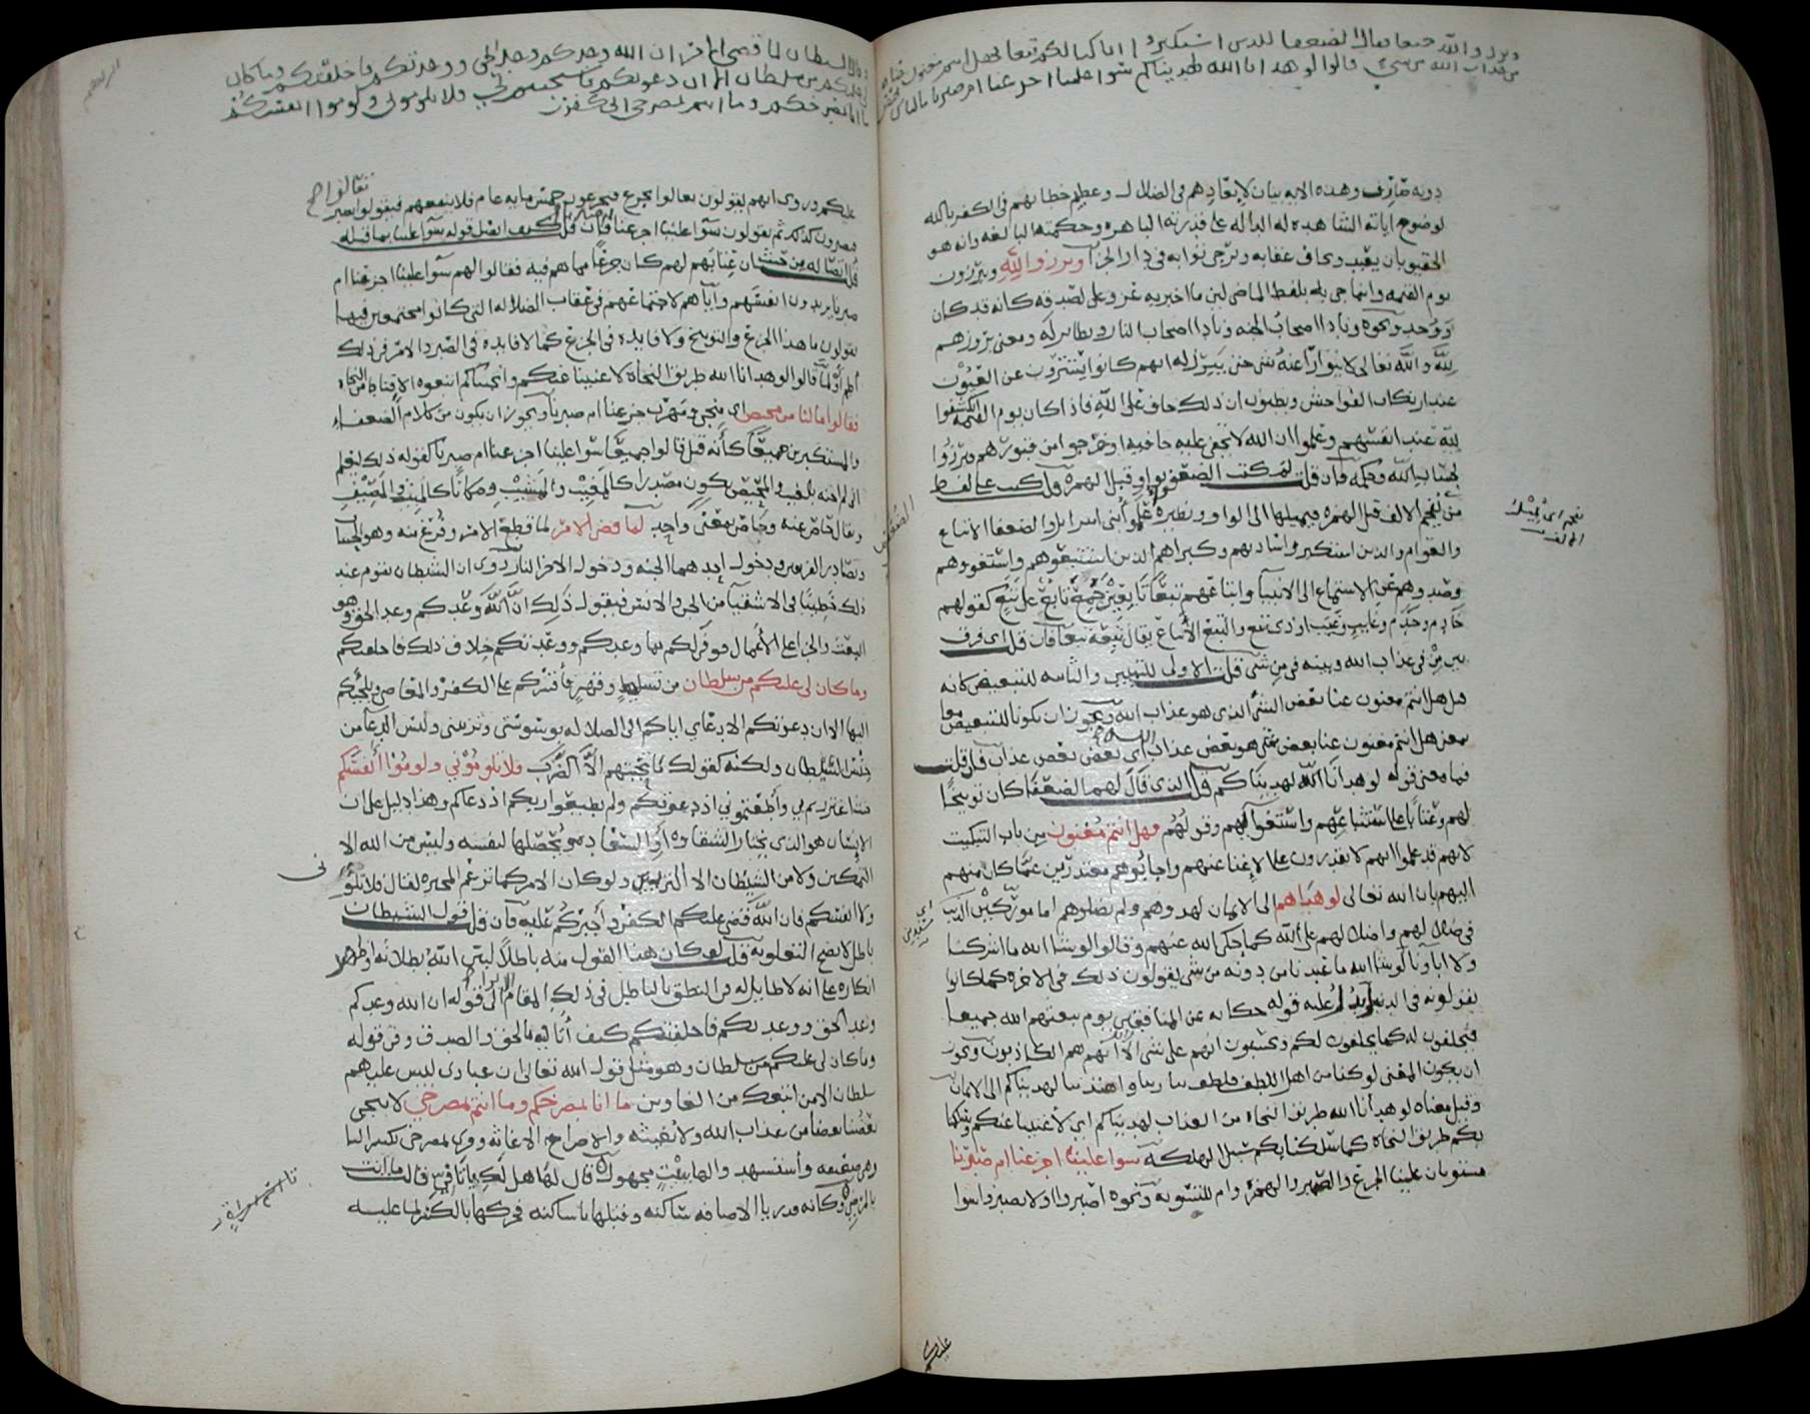 وبرزوا لله جميعا فقال الضعفا للذين استكبروا انا كنا لكم تبعا فهل انتم مغنون عنا
من عذاب الله من شيء قالوا لو هدانا الله لهديناكم سوا علينا اجزعنا ام صبرنا ما لنا من محيص
دونه صارف وهذه الايه بيان لابعادهم في الضلال وعظيم خطابهم في الكفر بالله
لوضوح اياته الشاهده له الداله على قدرته الباهره وحكمته البالغه وانه هو
الحقيق بان يعبد ويخاف عقابه ويرجى ثوابه في دار الجزا وبرزوا لله ويبرزون
يوم القيمه وانما جي به بلفظ الماضي لان ما اخبر به عز وعلى لصدقه كانه قد كان
ووجد ونحوه ونادا اصحاب الجنه ونادا اصحاب النار ونظاير له ومعنى بروزهم
لله والله تعالى لا يتوارا عنه شي حتى يبرز له انهم كانوا يستترون عن العيون
عند ارتكاب الفواحش ويظنون ان ذلك خاف على الله فاذا كان يوم القيمه انكشفوا
لله عند انفسهم وعلموا ان الله لا تخفى عليه خافيه او خرجوا من قبورهم فبرزوا
لحساب الله وحكمه فان قلت لم كتب الضعفوا بواو قبل الهمزه قلت كتب على لفظ
من يفخم الالف قبل الهمزه فيميلها الى الواو ونظيره علموا بني اسرايل والضعفا الاتباع
نفخم اي يميل
الالف
والعوام والذين استكبروا ساداتهم وكبراهم الذين استتبعوهم واستغووهم
وصدوهم عن الاستماع الى الانبيا واتباعهم تبعا تابعين جمع تابع على تبع كقولهم
خادم وخدم وغايب وغيب او ذوي تبع والتبع الاتباع يقال تبعه تبعا فان قلت اي فرق
بين من في عذاب الله وبينه في من شي قلت الاولى للتبيين والثانيه للتبعيض كانه
قيل هل انتم مغنون عنا بعض الشي الذي هو عذاب الله ويجوز ان يكونا للتبعيض معا
بمعنى هل انتم مغنون عنا بعض شي هو بعض عذاب الله اي بعض بعض عذاب الله فان قلت
فما معنى قوله لو هدانا الله لهديناكم قلت الذي قال لهم الضعفا كان توبيخا
لهم وعتابا على استتباعهم واستغوايهم وقولهم فهل انتم مغنون من باب التبكيت
لانهم قد علموا انهم لا يقدرون على الاغنا عنهم واجابوهم معتذرين عما كان منهم
اليهم بان الله تعالى لو هداهم الى الايمان لهدوهم ولم يضلوهم اما موركين الذنب
في ضلالهم واضلالهم على الله كما حكى الله عنهم وقالوا لو شا الله ما اشركنا
ولا اباونا لو شا الله ما عبدنا من دونه من شي يقولون ذلك في الاخره كما كانوا
يقولونه في الدنيا ويدل عليه قوله حكايه عن المنافقين يوم يبعثهم الله جميعا
فيحلفون له كما يحلفون لكم ويحسبون انهم على شي الا انهم هم الكاذبون ويجوز
ان يكون المعنى لو كنا من اهل اللطف فلطف بنا ربنا واهتدينا لهديناكم الى الايمان
وقيل معناه لو هدانا الله طريق النجاه من العذاب لهديناكم اي لاغنينا عنكم وسلكنا
بكم طريق النجاه كما سلكنا بكم سبيل الهلكه سوا علينا اجزعنا ام صبرنا
مستويان علينا الجزع والصبر والهمزه وام للتسويه ونحوه اصبروا او لا تصبروا سوا
عليكم
وقال الشيطان لما قضي الامر ان الله وعدكم وعد الحق ووعدتكم فاخلفتكم وما كان
لي عليكم من سلطان الا ان دعوتكم فاستجبتم لي فلا تلوموني ولوموا انفسكم
ما انا بمصرخكم وما انتم بمصرخي اني كفرت
عليكم وروى انهم يقولون تعالوا نجزع فيجزعون خمس مايه عام فلا ينفعهم فيقولون تعالوا نصبر
فيصبرون كذلك ثم يقولون سوا علينا اجزعنا ام صبرنا فان قلت كيف اتصل قوله سوا علينا بما قبله
قلت اتصاله من حيث ان عتابهم لهم كان جزعا مما هم فيه فقالوا لهم سوا علينا اجزعنا ام
صبرنا يريدون انفسهم واياهم لاجتماعهم في عقاب الضلاله التي كانوا مجتمعين فيها
يقولون ما هذا الجزع والتوبيخ ولا فايده في الجزع كما لا فايده في الصبر والامر من ذلك
اطم او لما قالوا لو هدانا الله طريق النجاة لاغنينا عنكم وانجيناكم اتبعوه الاقناط من النجاه
فقالوا ما لنا من محيص اي منجى ومهرب جزعنا ام صبرنا ويجوز ان يكون من كلام الضعفاء
والمستكبرين جميعا كانه قيل قالوا جميعا سوا علينا اجزعنا ام صبرنا كقوله ذلك ليعلم
اني لم اخنه بالغيب والمحيص يكون مصدرا كالمغيب والمشيب ومكانا كالمبيت والمصيف
ويقال حاص عنه وجاض بمعنى واحد لما قضي الامر لما قطع الامر وفرغ منه وهو الحساب
وتصادر الفريقين ودخول احدهما الجنه ودخول الاخر النار وروى ان الشيطان يقوم عند
ذلك خطيبا في الاشقيا من الجن والانس فيقول ذلك ان الله وعدكم وعد الحق وهو
البعث والجزا على الاعمال فوفى لكم بما وعدكم ووعدتكم خلاف ذلك فاخلفتكم
وما كان لي عليكم من سلطان من تسلط وقهر فاقسركم على الكفر والمعاصي والجيكم
اليها الا ان دعوتكم الا دعاي اياكم الى الضلاله بوسوستي وتزييني وليس الدعا من
جنس السلطان ولكنه كقولك ما تحيتهم الا الضرب فلا تلوموني ولوموا انفسكم
حيث اغتررتم بي واطعتموني اذ دعوتكم ولم تطيعوا ربكم اذ دعاكم وهذا دليل على ان
الانسان هو الذي يختار الشقاوه او السعاده ويحصلها لنفسه وليس من الله الا
التمكين ولا من الشيطان الا التزيين ولو كان الامر كما تزعم المجبره لقال فلا تلوموني
ولا انفسكم فان الله قضى عليكم الكفر واجبركم عليه فان قلت قول الشيطان
باطل لا يصح التعلق به قلت لو كان هذا القول منه باطلا لبين الله بطلانه واظهر
انكاره على انه لا طايل له في النطق بالباطل في ذلك المقام الا ترى الى قوله ان الله وعدكم
وعد الحق ووعدتكم فاخلفتكم كيف اتا فيه بالحق والصدق وفي قوله
وما كان لي عليكم من سلطان وهو مثل قول الله تعالى ان عبادي ليس لك عليهم
سلطان الا من اتبعك من الغاوين ما انا بمصرخكم وما انتم بمصرخي لا ينجي
بعضنا بعضا من عذاب الله ولا يغيثه والاصراخ الاغاثه وقري بمصرخي بكسر اليا
وهي ضعيفه واستشهد لها ببيت مجهول قال لها هل لك يا تا في قالت له ما انت
بالمرضي وكانه قدر يا الاضافه ساكنه وقبلها يا ساكنه فحركها بالكسر لما عليه